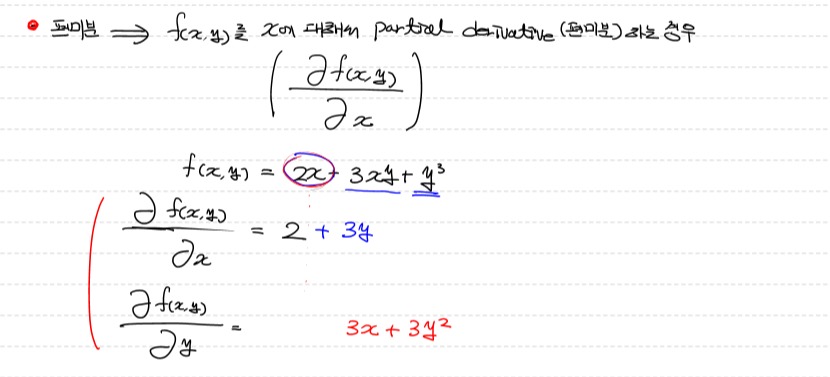 • 편미분 ⟹ f(x,y)를 x에 대해서 partial derivative (편미분)하는 경우
(∂f(x,y)/∂x)
f(x,y) = 2x + 3xy + y³
∂f(x,y)/∂x = 2 + 3y
∂f(x,y)/∂y = 3x + 3y²